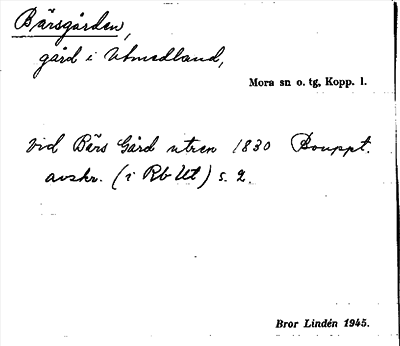 Bärsgården,
gård i Utmedland,
Mora sn o. tg, Kopp. l.
Vid Bärs Gård utren 1830 Bouppt.
avskr. (i Rb Ut) s. 2.
Bror Lindén 1945.